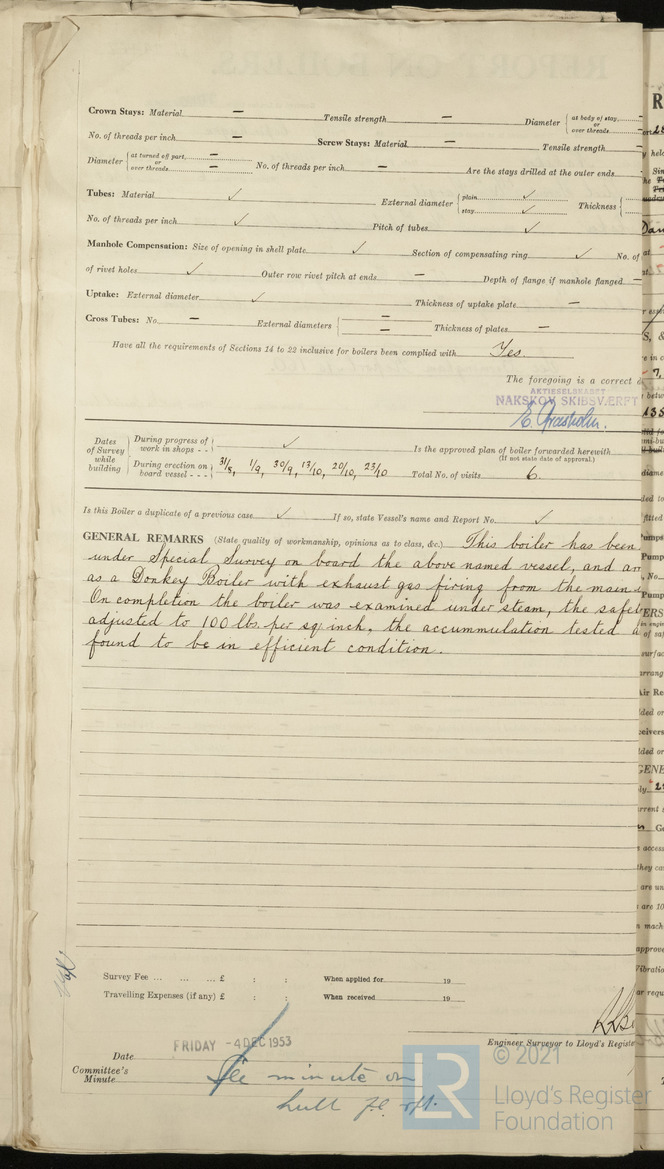 Crown Stays: Material — Tensile strength — Diameter { at body of stay, or over threads
No. of threads per inch — Screw Stays: Material — Tensile strength —
Diameter { at turned off part, — or over threads — No. of threads per inch — Are the stays drilled at the outer ends
Tubes: Material ✓ External diameter { plain ✓ stay ✓ Thickness {
No. of threads per inch ✓ Pitch of tubes ✓
Manhole Compensation: Size of opening in shell plate ✓ Section of compensating ring ✓ No. of
of rivet holes ✓ Outer row rivet pitch at ends — Depth of flange if manhole flanged —
Uptake: External diameter ✓ Thickness of uptake plate —
Cross Tubes: No. — External diameters { — — Thickness of plates —
Have all the requirements of Sections 14 to 22 inclusive for boilers been complied with Yes
The foregoing is a correct
AKTIESELSKABET
NAKSKOV SKIBSVÆRFT
Dates of Survey while building { During progress of work in shops - - ✓ Is the approved plan of boiler forwarded herewith (If not state date of approval.)
During erection on board vessel - - - 31/8, 1/9, 30/9, 13/10, 20/10, 23/10 Total No. of visits 6.
Is this Boiler a duplicate of a previous case ✓ If so, state Vessel's name and Report No. ✓
GENERAL REMARKS (State quality of workmanship, opinions as to class, &c.) This boiler has been
under Special Survey on board the above named vessel, and
as a Donkey Boiler with exhaust gas firing from the main
On completion the boiler was examined under steam, the
adjusted to 100 lbs. per sq inch, the accummulation tested
found to be in efficient condition.
Survey Fee ... ... ... £ : : When applied for 19
Travelling Expenses (if any) £ : : When received 19
Engineer Surveyor to Lloyd's Registe
FRIDAY -4 DEC 1953
Date
Committee's Minute See minute on
hull
LR
© 2021
Lloyd's Register
Foundation